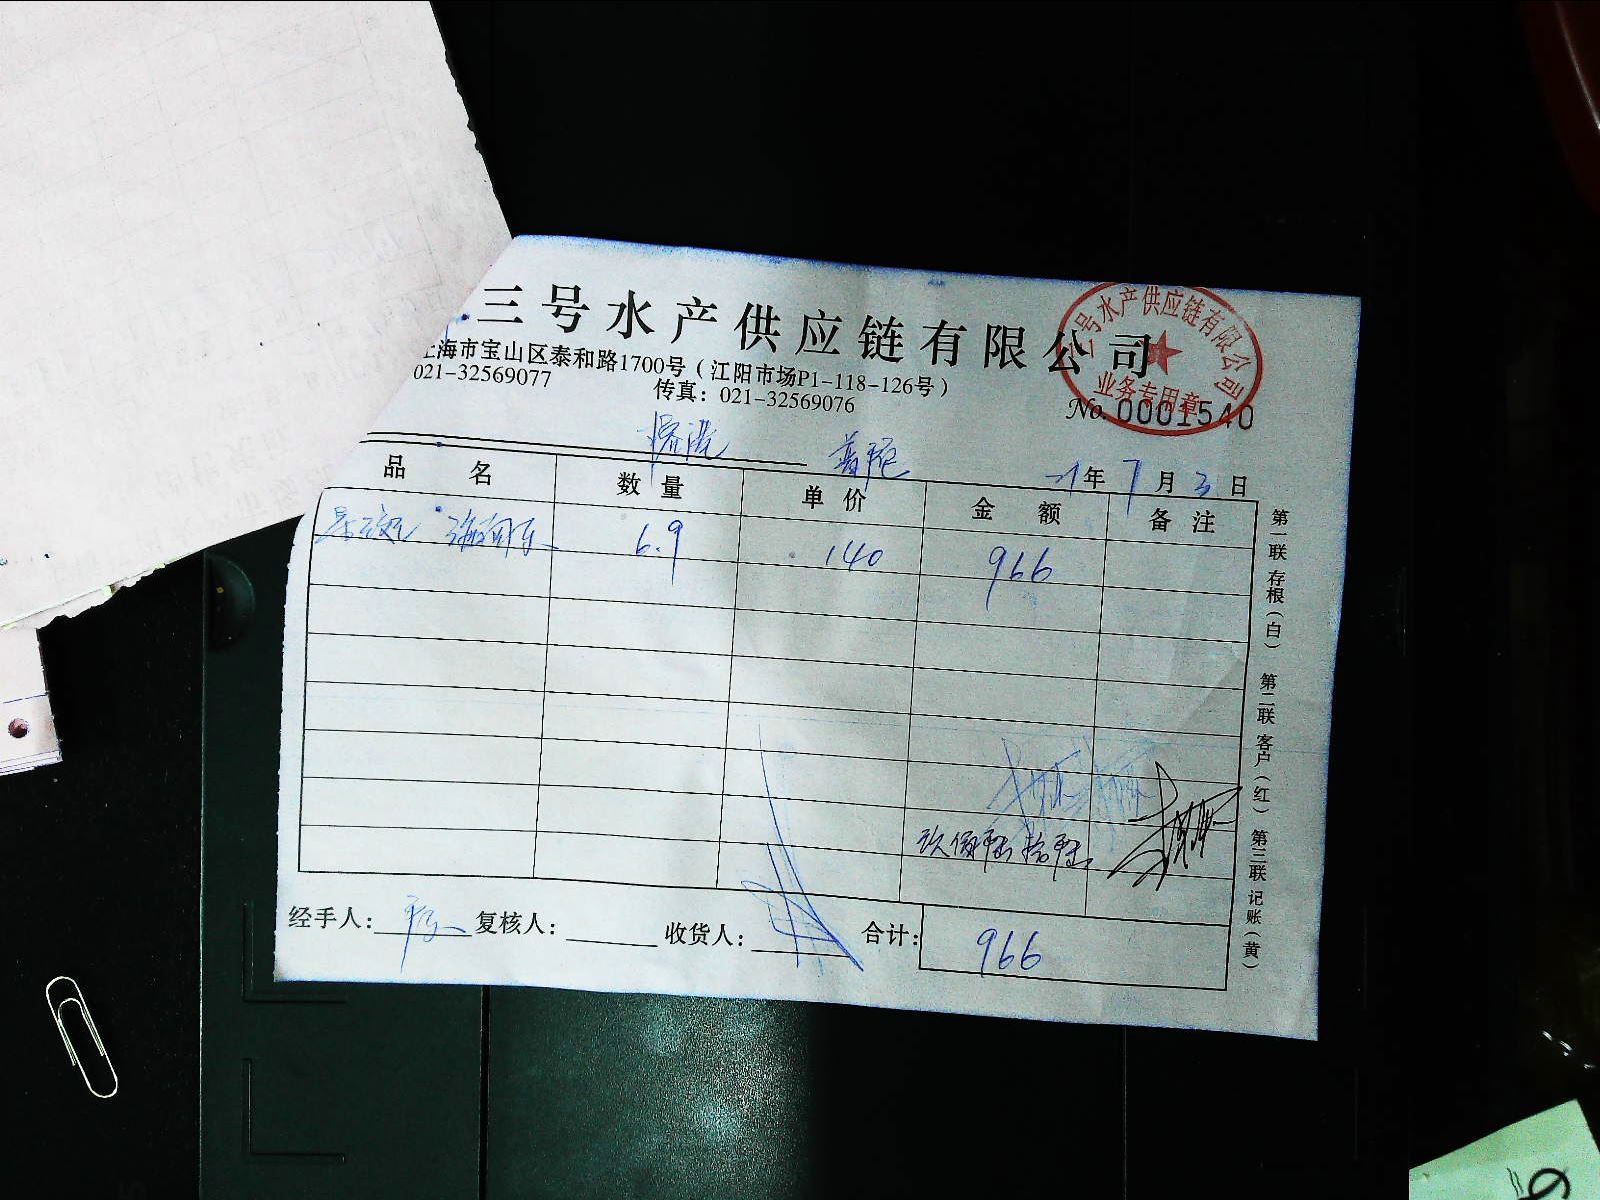 三号水产供应链有限公司
上海市宝山区泰和路1700号（江阳市场P1-118-126号）
021-32569077 传真：021-32569076
三号水产供应链有限公司
业务专用章
No. 0001540
21年7月3日
品名 数量 单价 金额 备注
6.9 140 966
玖佰陆拾陆
经手人： 复核人： 收货人： 合计： 966
第一联 存根（白） 第二联 客户（红） 第三联 记账（黄）